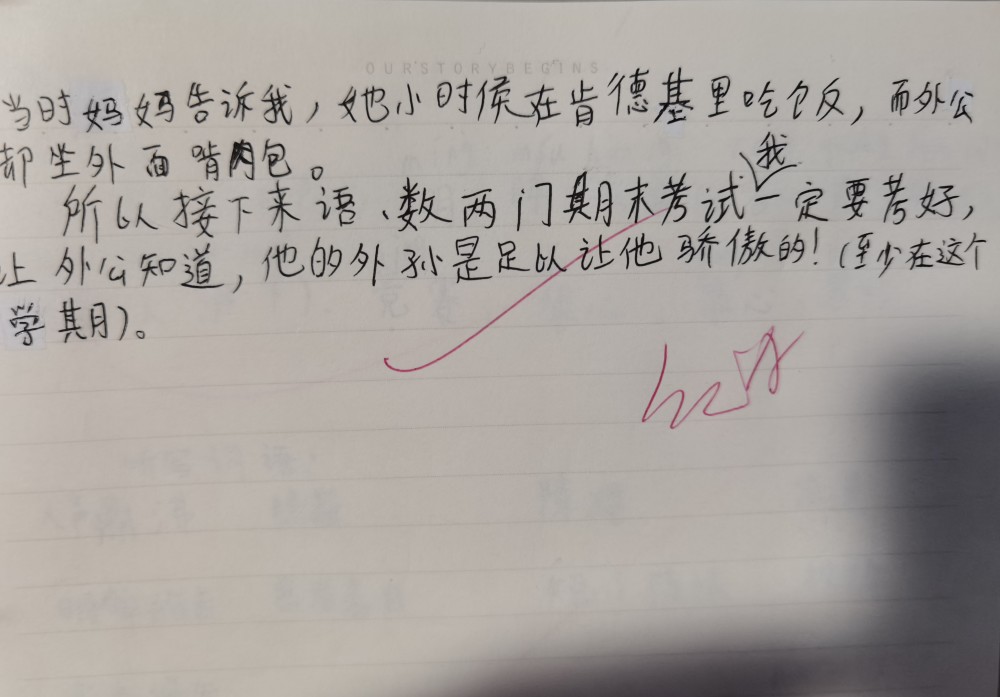 OURSTORYBEGINS
当时妈妈告诉我，她小时侯在肯德基里吃饭，而外公
却坐外面啃肉包。
所以接下来语、数两门期末考试我一定要考好，
让外公知道，他的外孙是足以让他骄傲的！（至少在这个
学期）。